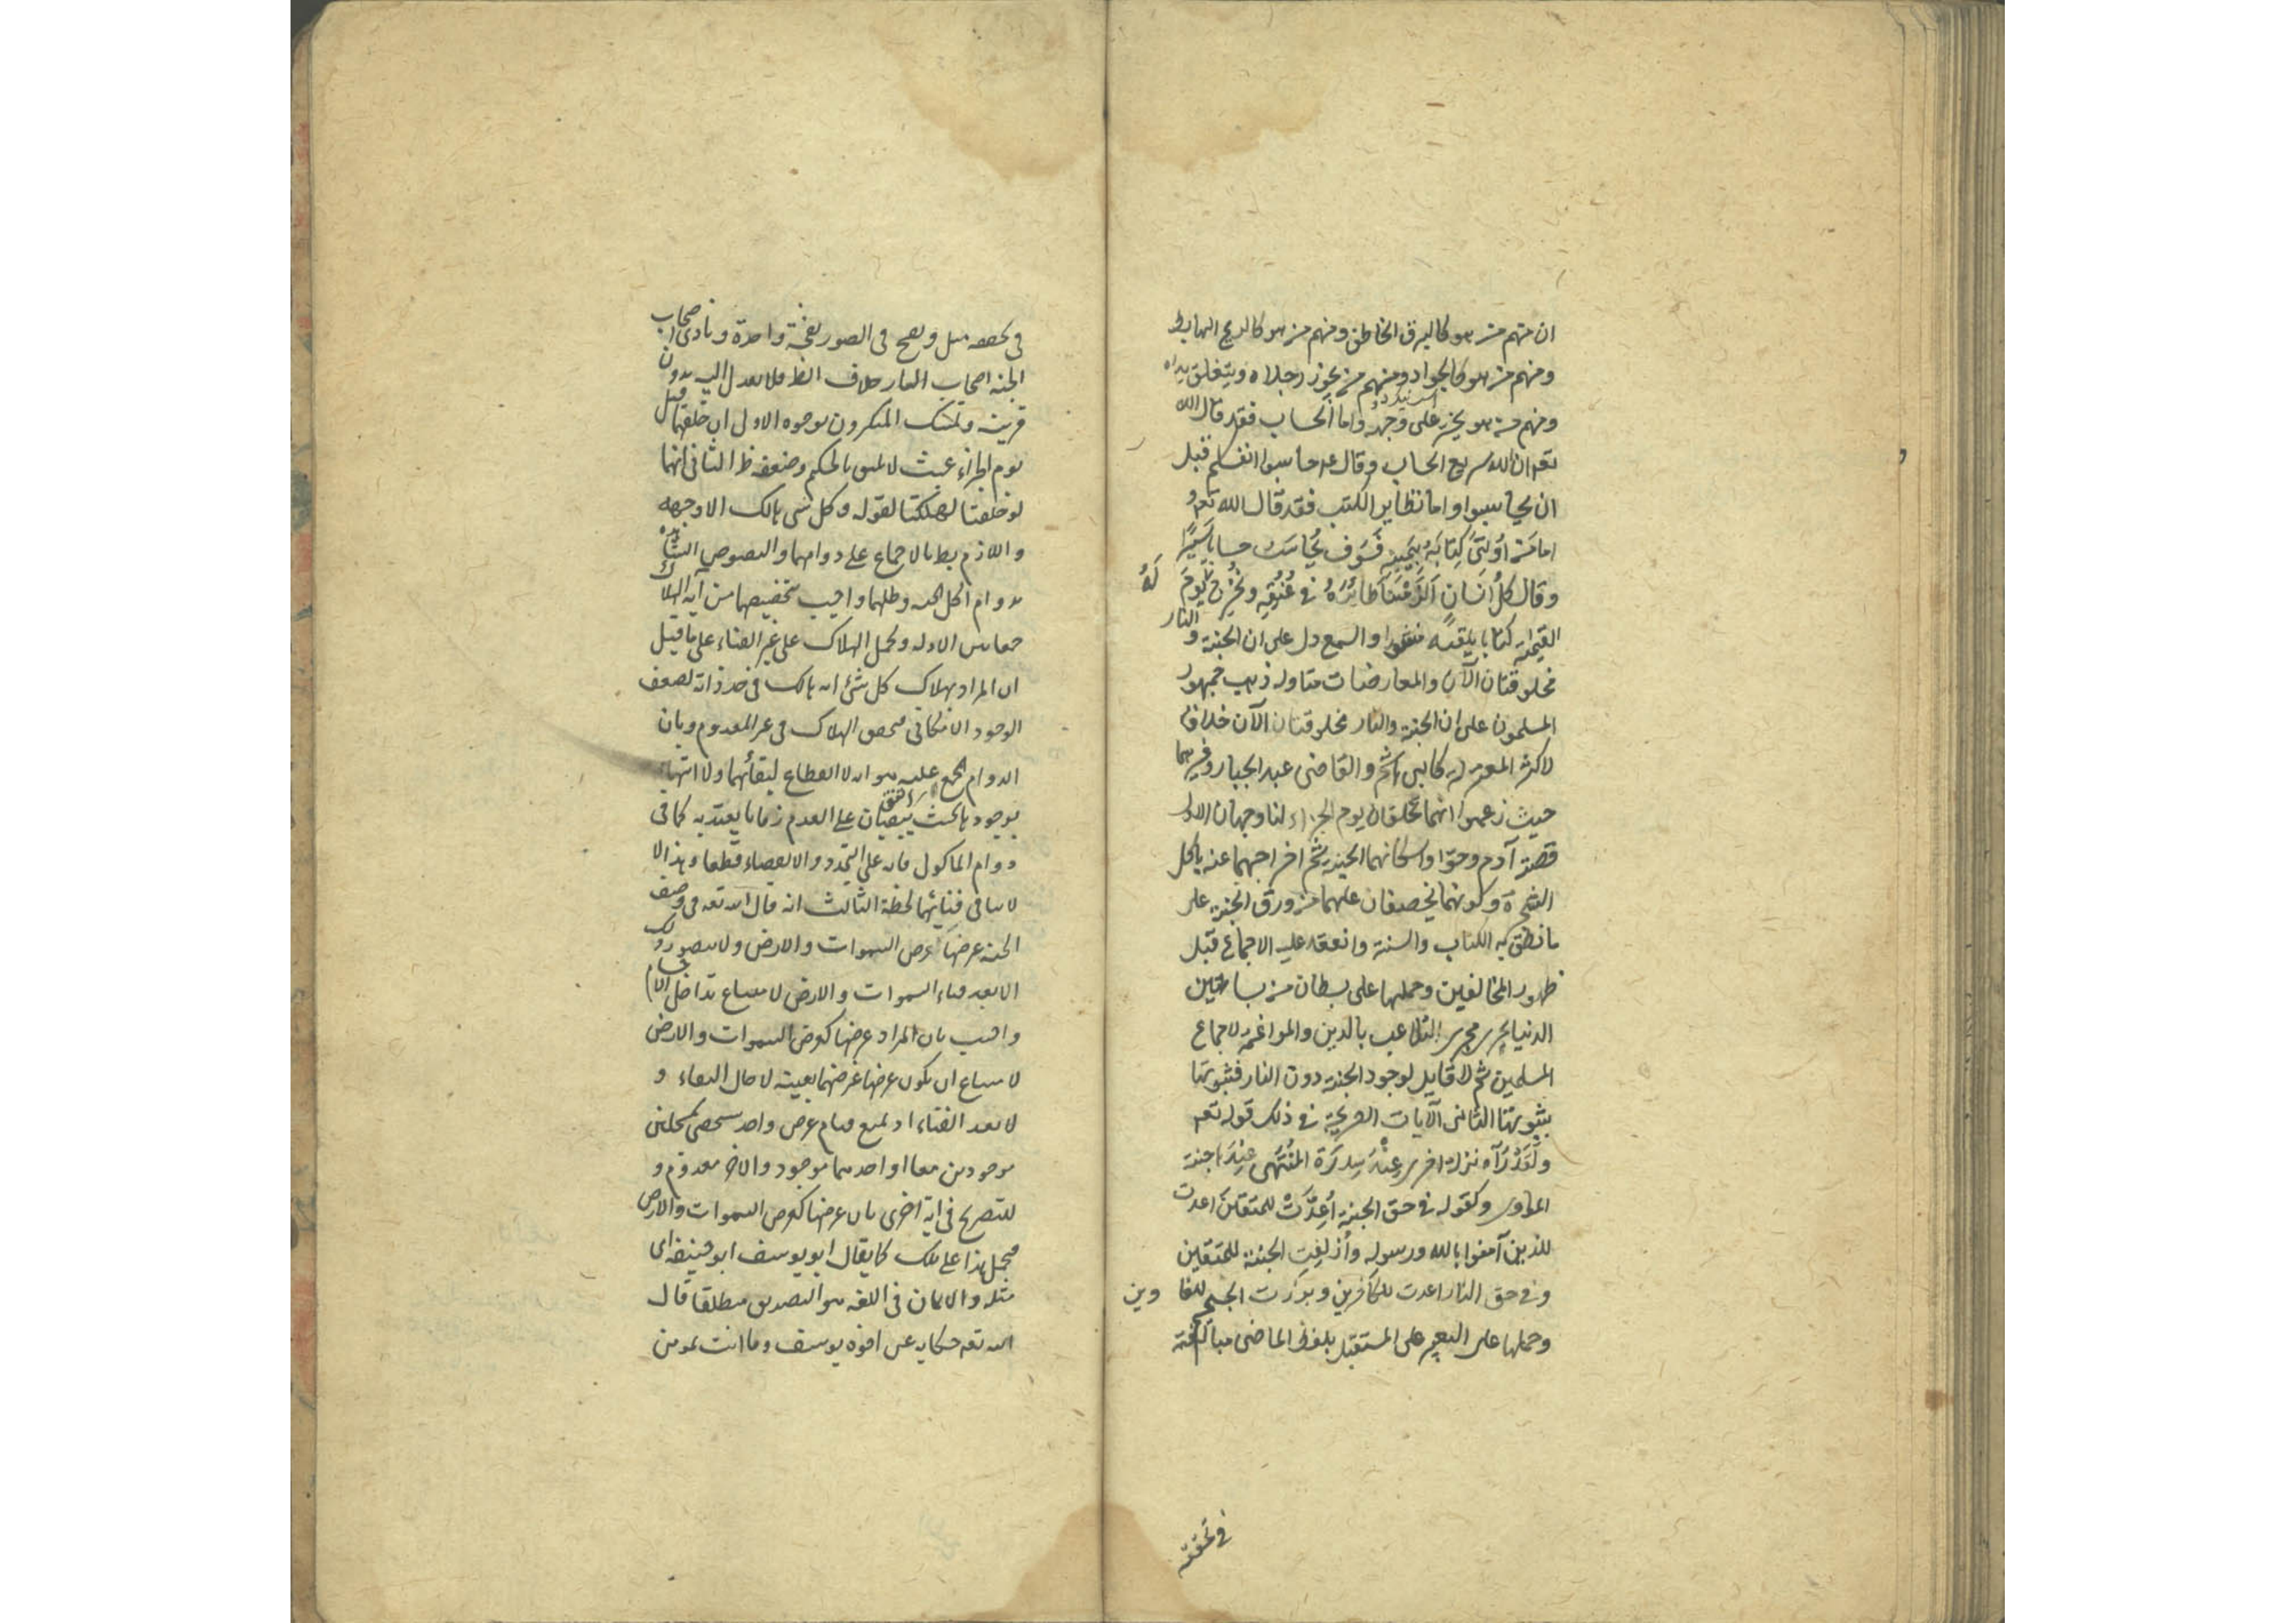 ان منهم من هو كالبرق الخاطف ومنهم من هو كالريح الهابط
ومنهم من هو كالجواد ومنهم من يجوز رجلاه ويتعلق يداه
ومنهم من هو يخر على وجهه واما الحساب فقد قال الله
تعه ان الله سريع الحساب وقال عم حاسبوا انفسكم قبل
ان يحاسبوا واما تطاير الكتب فقد قال الله تعه و
اما من اوتى كتابه بيمينه فسوف يحاسب حسابا يسيرا
وقال كل انسان الزمناه طائره فى عنقه ونخرج له يوم
القيمة كتابا يلقيه منشورا والسمع دل على ان الجنة و النار
مخلوقتان الآن والمعارضات متاولة ذهب جمهور
المسلمون على ان الجنة والنار مخلوقتان الآن خلافا
لاكثر المعتزلة كابى هاشم والقاضى عبد الجبار وغيرهما
حيث زعموا انهما تخلقان يوم الجزاء لنا وجهان الاول
قصة آدم وحوا واسكانهما الجنة ثم اخراجهما عنه باكل
الشجرة وكونهما يخصفان عليهما من ورق الجنة على
ما نطق به الكتاب والسنة وانعقد عليه الاجماع قبل
ظهور المخالفين وحملها على بستان من بساتين
الدنيا يجرى مجرى التلاعب بالدين والمراغمة لاجماع
المسلمين ثم لا قايل لوجود الجنة دون النار فثبوتها
بثبوتها الثانى الآيات الصريحة فى ذلك قوله تعه
ولقد رآه نزلة اخرى عند سدرة المنتهى عندها جنة
الماوى وكقوله فى حق الجنة اعدت للمتقين اعدت
للذين آمنوا بالله ورسوله وأزلفت الجنة للمتقين
وفى حق النار اعدت للكافرين وبرزت الجحيم للغاوين
وحملها على التعبير على المستقبل بلفظ الماضى مبالغة
فى تحققه
فى تحققه مثل ونفخ فى الصور نفخة واحدة ونادى اصحاب
الجنة اصحاب النار خلاف الظ فلا يعدل اليه بدون
قرينة وتمسك المنكرون بوجوه الاول ان خلقهما قبل
يوم الجزاء عبث لا يليق بالحكيم وضعفه ظ الثانى انهما
لو خلقتا لهلكتا لقوله و كل شى هالك الا وجهه
واللازم بط بالاجماع على دوامهما والنصوص الشاهدة
بدوام اكل الجنة وظلها واجيب بتخصيصهما من آية الهلاك
جمعا بين الادلة وبحمل الهلاك على غير الفناء على ما قيل
ان المراد بهلاك كل شئ انه هالك فى حد ذاته لضعف
الوجود الامكانى فيحصل الهلاك فى غير المعدوم وبان
الدوام المجمع عليه هو انه لا انقطاع لبقائهما ولا انتهاء
بوجود بحيث يبقيان على العدم زمانا يعتد به كما فى
دوام الماكول فانه على التجدد والانقضاء قطعا وهذا لا
لا ينافى فنائهما لحظة الثالث انه قال الله تعه فى وصف
الجنة عرضها عرض السموات والارض ولا يتصور ذلك
الا بعد فناء السموات والارض لامتناع تداخل الاجسام
واجيب بان المراد عرضها كعرض السموات والارض
لامتناع ان يكون عرضها عرضهما بعينه لا حال البقاء و
لا بعد الفناء اذ يمتنع قيام عرض واحد شخصى بمحلين
موجودين معا او احدهما موجود والاخر معدوم و
للتصريح فى آية اخرى بان عرضها كعرض السموات والارض
فيحمل هذا على تلك كما يقال ابو يوسف ابو حنيفة اى
مثله والايمان فى اللغة هو التصديق مطلقا قال
الله تعه حكاية عن اخوة يوسف وما انت بمومن